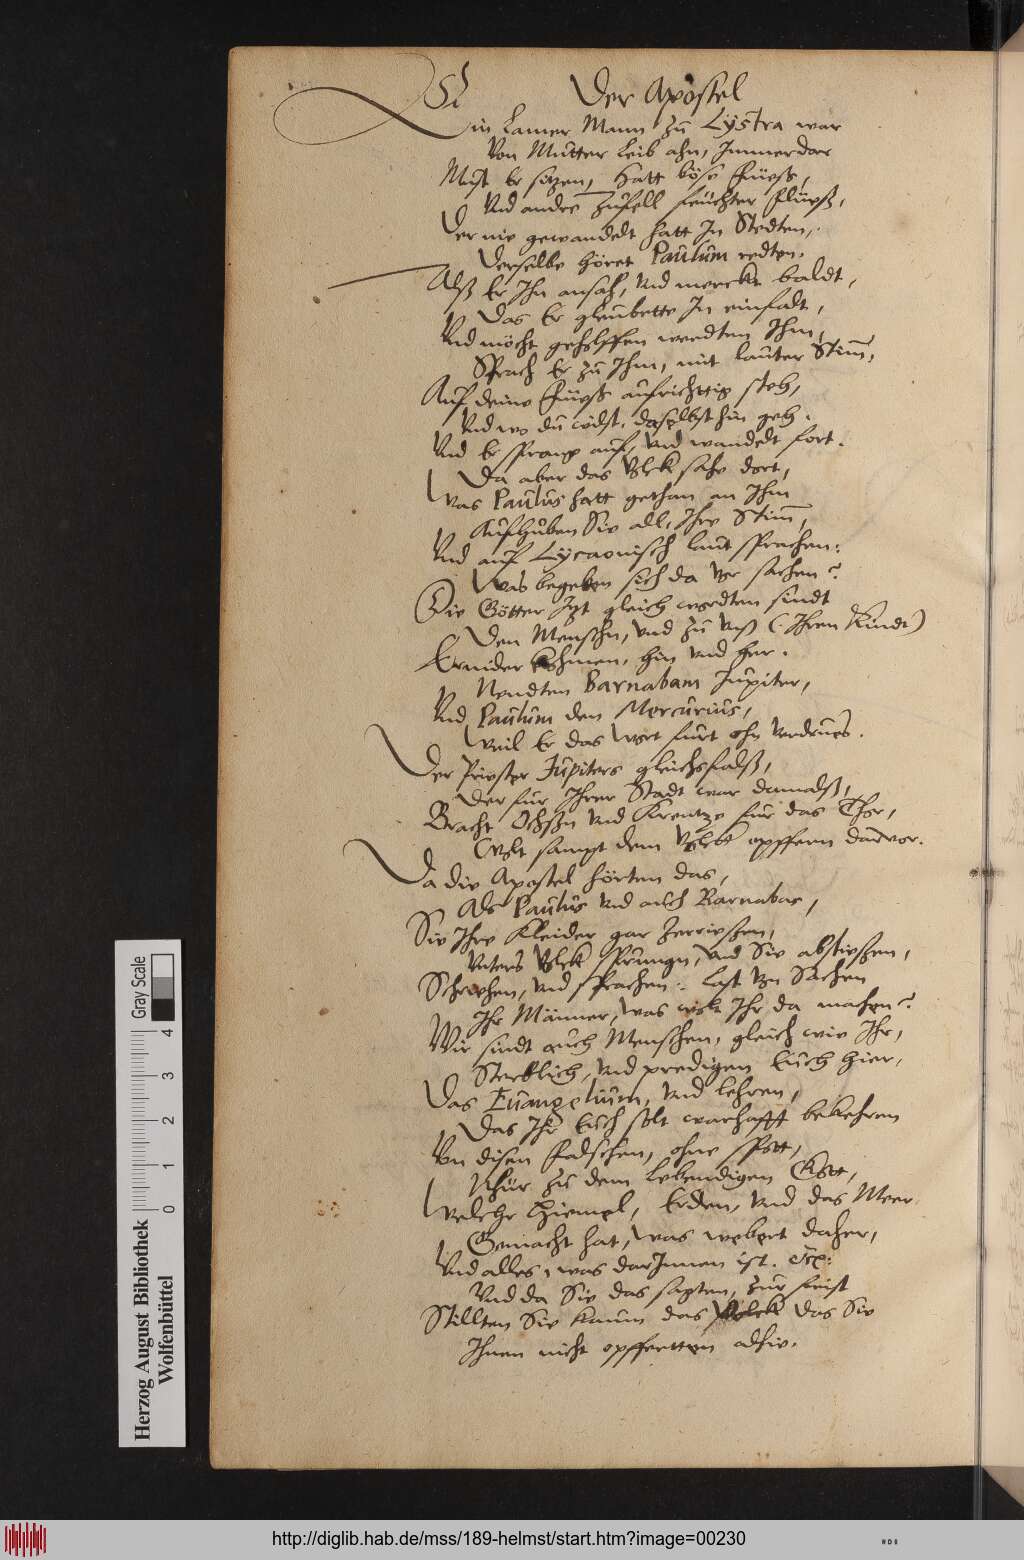 Der Apostel
Ein Lamer Mann zu Lystra war
Von Mutter Leib ahn, Immerdar
Must Er sitzen, Hatt böse Füeß,
Vnd andre Zufell feuchter Flüeß,
Der nie gewandelt hatt In Stedten,
Derselbe höret Paulum redten.
Alß Er Ihn ansah, Vnd merckt baldt,
Das Er gleubette In einfalt,
Vnd möcht geholffen werdten Ihm,
Sprach Er zu Ihm, mit lauter Stim̄,
Auf deine Füeß aufrichttig steh,
Vnd wo du wilst, daselbst hin geh.
Vnd Er sprang auf, vnd wandelt fort.
Da aber das Volck sahe dort,
Was Paulus hatt gethan an Ihm
Aufhuben Sie all, Ihre Stim̄,
Vnd auf Lycaonisch laut sprachen:
Was begeben sich da vor sachen?
Die Götter Itzt gleich wordten sindt
Den Menschn, vnd zu vnß (Ihrem Kindt)
Ernider kohmen, hin vnd her.
Nendten Barnabam Jupiter,
Vnd Paulum den Mercurius,
Weil Er das Wort furt ohn Verdrues.
Der Priester Jupiters gleichsfalß,
Der fur Ihrer Stadt war damalß,
Bracht Ochsßn vnd Krentze fur das Thor,
Wolt sampt dem Volck opffern darvor.
Da die Apostel hörten das,
Als Paulus vnd auch Barnabas,
Sie Ihre Kleider gar zerrießen,
Vnters Volck sprungn, vnd Sie abließen,
Schrihen, vnd sprachen: Last von Sachen
Ihr Männer, was wolt Ihr da machen?
Wir sindt auch Menschen, gleich wie Ihr,
Sterblich, vnd predigen Euch hier,
Das Euangelium, vnd lehren,
Das Ihr Euch solt warhafft bekehren
Von disen falschen, ohne spott,
Zu dem Lebendigen Gott,
Welchr Himmel, Erden, vnd das Meer
Gemacht hat, was webert daher,
Vnd alles, was darInnen ist.
Vnd da Sie das sagten, zur frist
Stillten Sie kaum das Volck das Sie
Ihnen nicht opffertten alhie.
Herzog August Bibliothek
Wolfenbüttel
0 1 2 3 4
Gray Scale
http://diglib.hab.de/mss/189-helmst/start.htm?image=00230